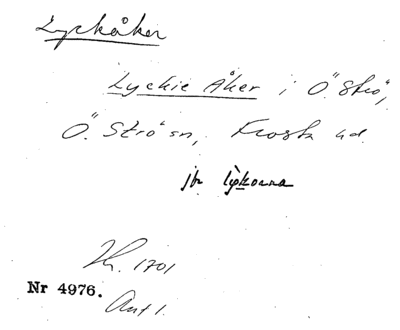 Lyckåker
Lyckie Åker i Ö. Strö,
Ö. Strö sn, Frosta hd.
jfr lykorna
1701
Nr 4976.
Ant 1.